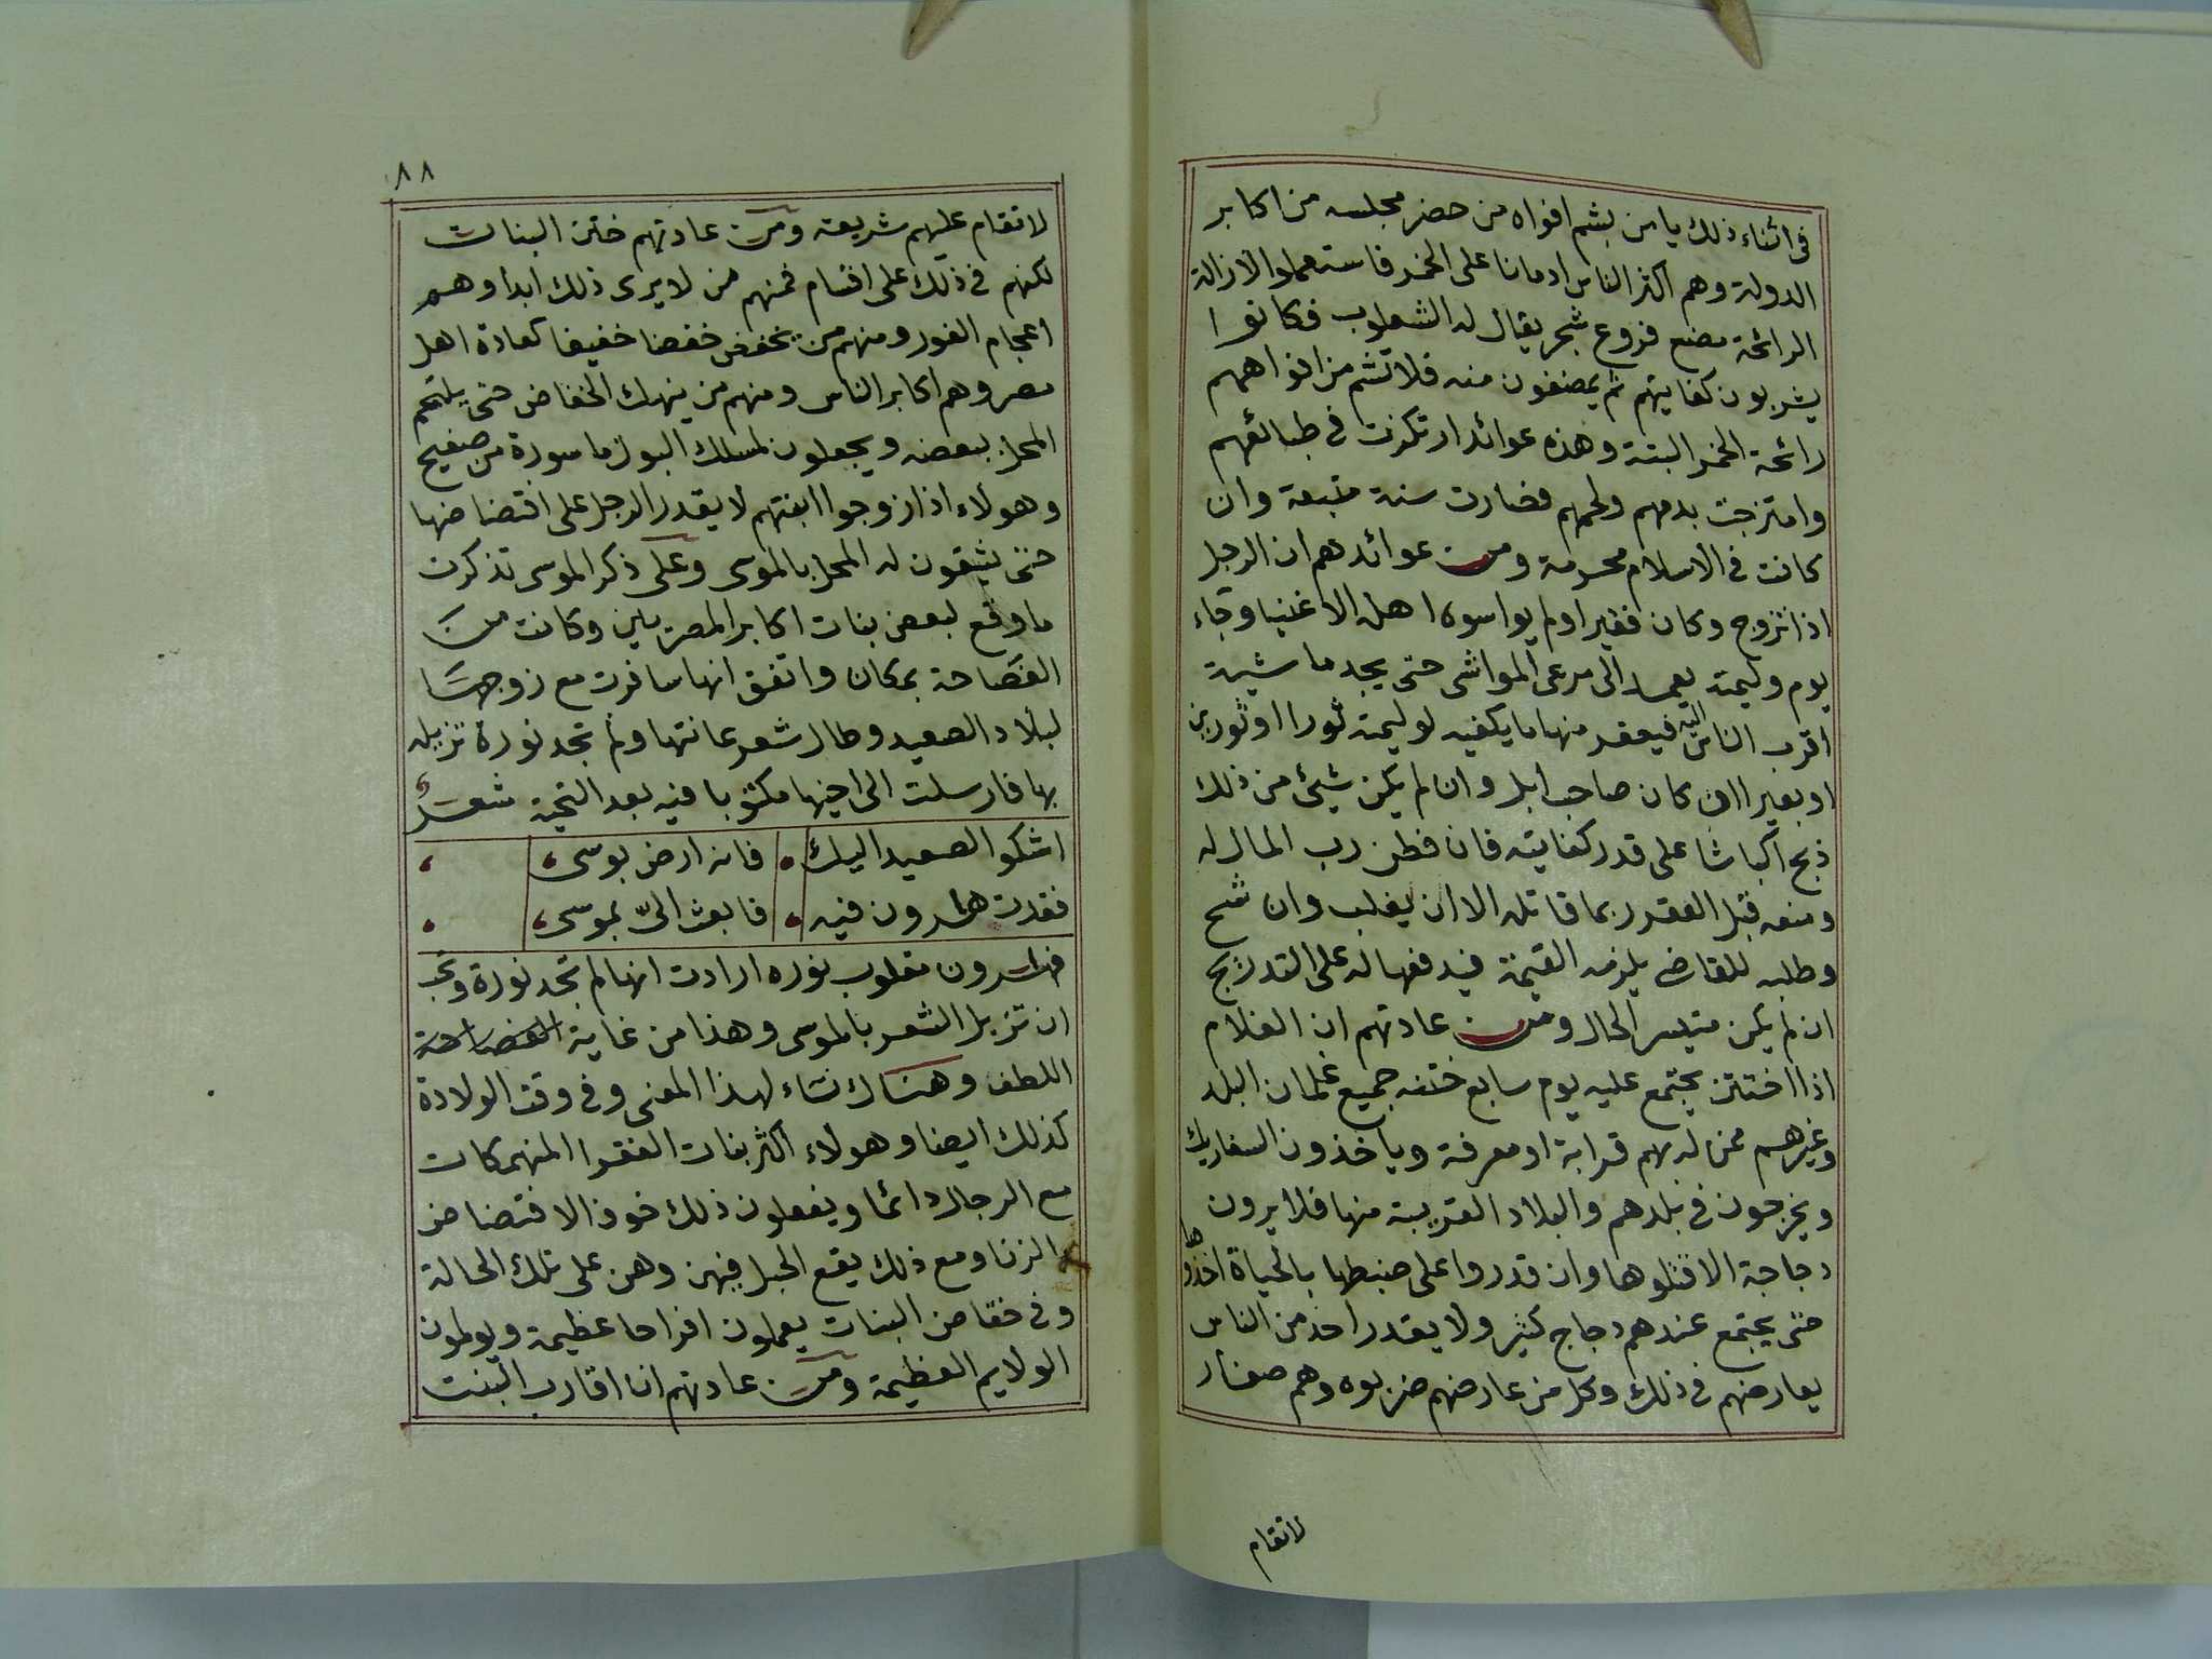 في اثناء ذلك يامن بشم افواه من حضر مجلسه من اكابر
الدولة وهم اكثر الناس ادمانا على الخمر فاستعملوا لازالة
الرائحة مضغ فروع شجر يقال له الشعلوب فكانوا
يشربون كفايتهم ثم يمضغون منه فلا تشم من افواههم
رائحة الخمر البتة وهذه عوائد ارتكزت في طبائعهم
وامتزجت بدمهم ولحمهم فصارت سنة متبعة وان
كانت في الاسلام محرمة ومن عوائدهم ان الرجل
اذا تزوج وكان فقيرا ولم يواسوه اهله الاغنيا وجاء
يوم وليمته يعمد الى مرعى المواشى حتى يجد ماشية
اقرب الناس اليه فيعقر منها ما يكفيه لوليمته ثورا او ثورين
او بعيرا ان كان صاحب ابل وان لم يكن شيئ من ذلك
ذبح اكباشا على قدر كفايته فان فطن رب المال له
ومنعه قبل العقر ربما قاتله الا ان يغلب وان شح
وطلبه للقاضى يلزمه القيمة فيدفعها له على التدريج
ان لم يكن متيسر الحال ومن عادتهم ان الغلام
اذا اختتن يجتمع عليه يوم سابع ختنه جميع غلمان البلد
وغيرهم ممن له بهم قرابة او معرفة وياخذون السفاريك
ويخرجون في بلدهم والبلاد القريبة منها فلا يرون
دجاجة الا قتلوها وان قدروا على ضبطها بالحياة اخذوها
حتى يجتمع عندهم دجاج كثير ولا يقدر احد من الناس
يعارضهم في ذلك وكل من عارضهم ضربوه وهم صغار
لا تقام
٨٨
لا تقام عليهم شريعة ومن عادتهم ختن البنات
لكنهم في ذلك على اقسام فمنهم من لا يرى ذلك ابدا وهم
اعجام الفور ومنهم من يخفض خفضا خفيفا كعادة اهل
مصر وهم اكابر الناس ومنهم من ينهك الخفاض حتى يلتحم
المحل ببعضه ويجعلون لمسلك البول ماسورة من صفيح
وهولاء اذا زوجوا ابنتهم لا يقدر الرجل على افتضاضها
حتى يشقون له المحل بالموسى وعلى ذكر الموسى تذكرت
ما وقع لبعض بنات اكابر المصريين وكانت من
الفصاحة بمكان واتفق انها سافرت مع زوجها
لبلاد الصعيد وطال شعر عانتها ولم تجد نورة تزيله
بها فارسلت الى اخيها مكتوبا فيه بعد التحية شعر
اشكو الصعيد اليك فانه ارض بوسى
فقدت هارون فيه فابعث الىّ بموسى
فهارون مقلوب نوره ارادت انها لم تجد نورة وتحب
ان تزيل الشعر بالموسى وهذا من غاية الفصاحة
اللطف وهناك نساء لهذا المعنى وفي وقت الولادة
كذلك ايضا وهولاء اكثر بنات الفقرا المنهمكات
مع الرجال دائما ويفعلون ذلك خوف الافتضاض
والزنا ومع ذلك يقع الحبل فيهن وهن على تلك الحالة
وفي خفاض البنات يعملون افراحا عظيمة ويولمون
الولايم العظيمة ومن عادتهم ان اقارب البنت